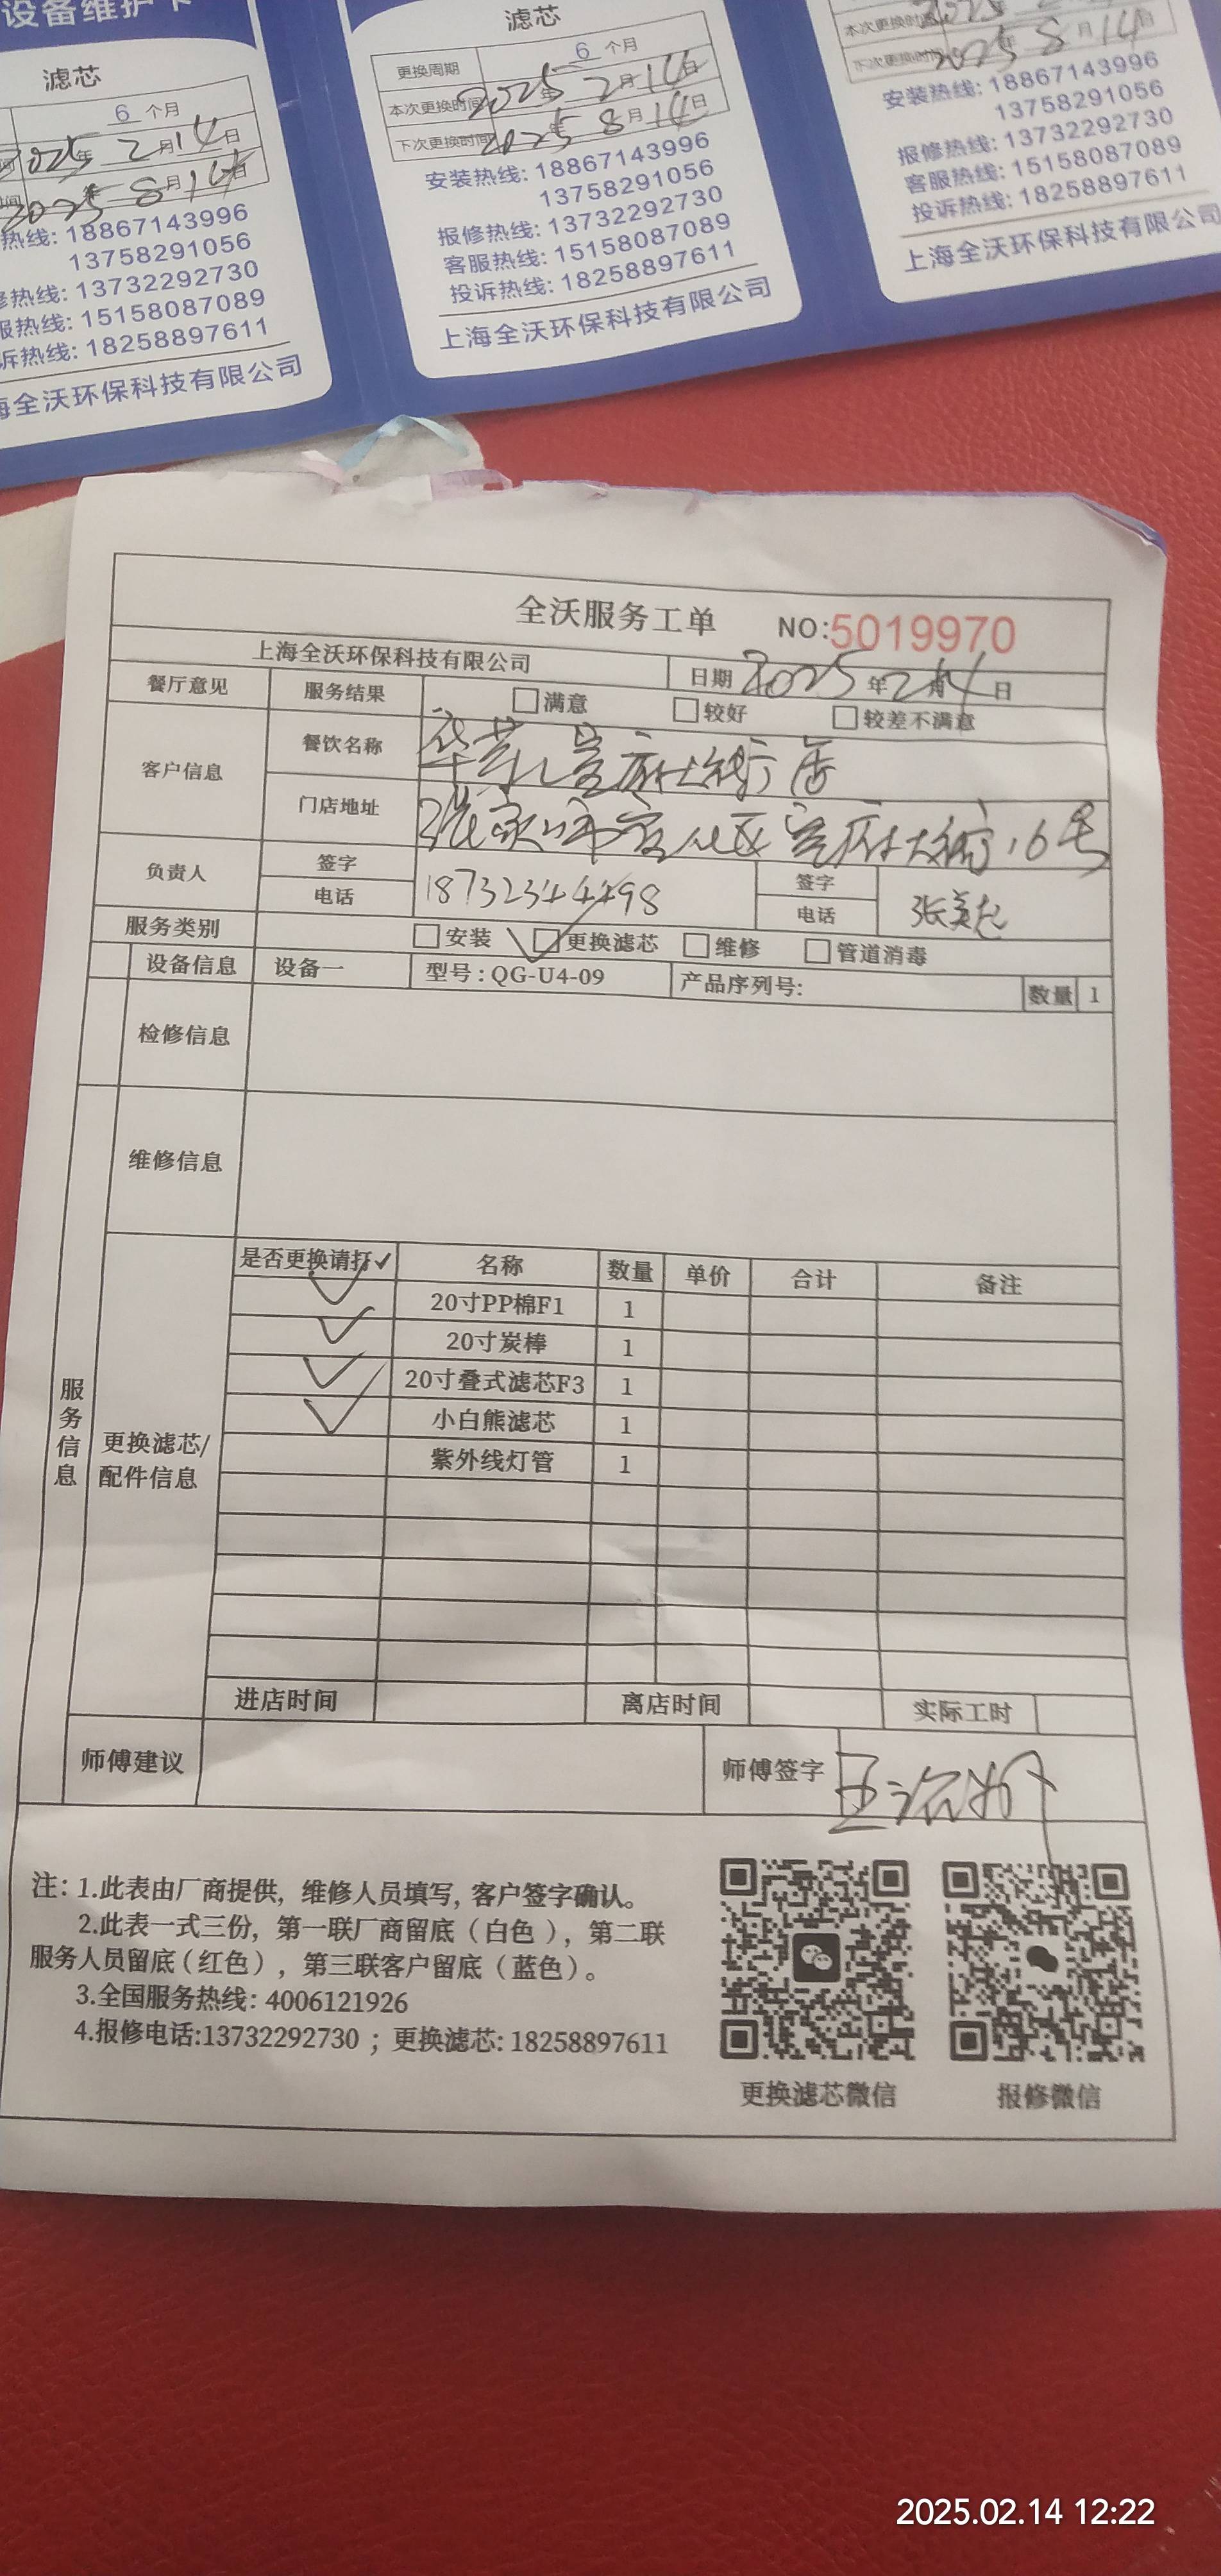 设备维护卡
滤芯
6 个月
2025年 2月14日
2025年 8月14日
热线: 18867143996
13758291056
修热线: 13732292730
服热线: 15158087089
诉热线: 18258897611
海全沃环保科技有限公司
滤芯
更换周期 6 个月
本次更换时间 2025年 2月14日
下次更换时间 2025年 8月14日
安装热线: 18867143996
13758291056
报修热线: 13732292730
客服热线: 15158087089
投诉热线: 18258897611
上海全沃环保科技有限公司
本次更换时间
下次更换时间 2025年 8月14日
安装热线: 18867143996
13758291056
报修热线: 13732292730
客服热线: 15158087089
投诉热线: 18258897611
上海全沃环保科技有限公司
全沃服务工单 NO:5019970
上海全沃环保科技有限公司 日期 2025年2月14日
餐厅意见 服务结果 满意 较好 较差不满意
客户信息 餐饮名称 店
门店地址 16号
负责人 签字 签字
电话 18732344498 电话 张
服务类别 安装 更换滤芯 维修 管道消毒
设备信息 设备一 型号: QG-U4-09 产品序列号: 数量 1
检修信息
维修信息
服务信息
更换滤芯/配件信息
是否更换请打✓ 名称 数量 单价 合计 备注
✓ 20寸PP棉F1 1
✓ 20寸炭棒 1
✓ 20寸叠式滤芯F3 1
✓ 小白熊滤芯 1
紫外线灯管 1
进店时间 离店时间 实际工时
师傅建议 师傅签字
注: 1.此表由厂商提供, 维修人员填写, 客户签字确认。
2.此表一式三份, 第一联厂商留底（白色）, 第二联
服务人员留底（红色）, 第三联客户留底（蓝色）。
3.全国服务热线: 4006121926
4.报修电话:13732292730 ; 更换滤芯: 18258897611
更换滤芯微信 报修微信
2025.02.14 12:22